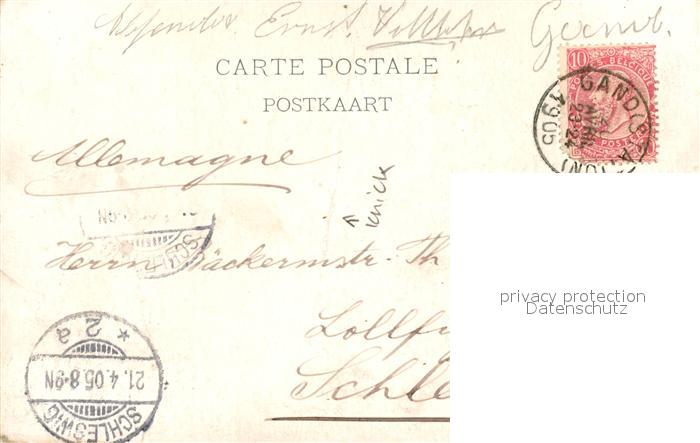 Absender Ernst
CARTE POSTALE
POSTKAART
10
POSTES BELGIQUE
GAND (STATION)
AVRIL
23-24
1905
Allemagne
Knick
Herrn Bäckermstr. Th
Lollfu
Schle
privacy protection
Datenschutz
SCHLESWIG
21.4.05.8-9N
* 2 a